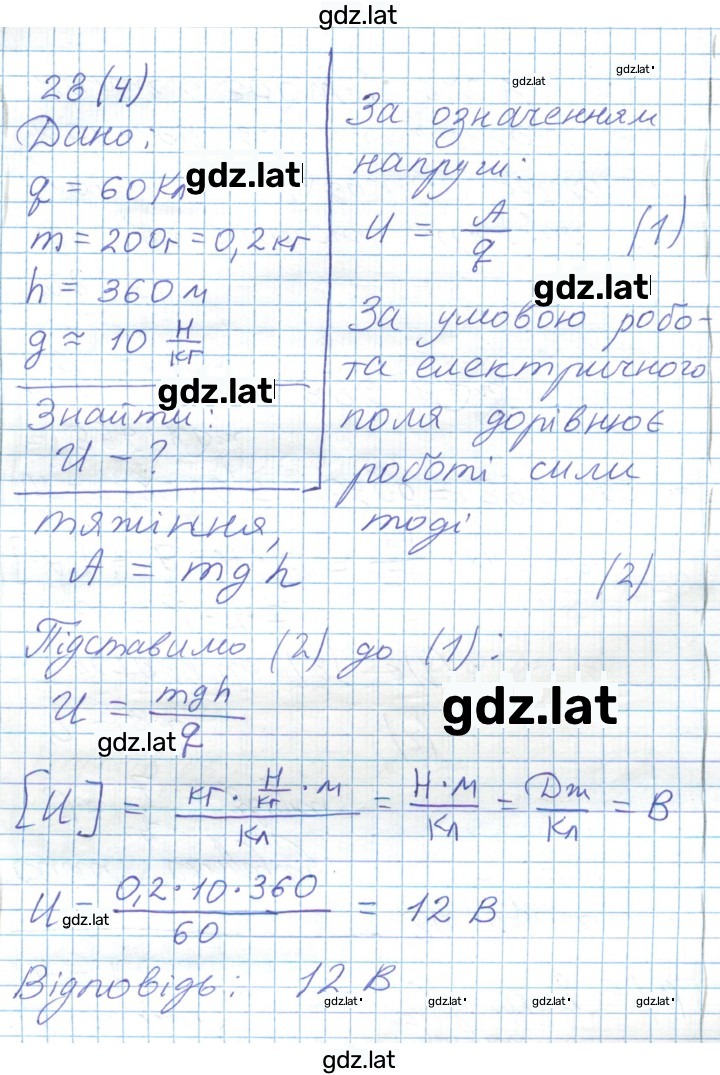 gdz.lat
28 (4)
Дано:
q = 60 Кл
gdz.lat
m = 200г = 0,2 кг
h = 360 м
g ≈ 10 Н/кг
gdz.lat
Знайти:
U - ?
gdz.lat
gdz.lat
За означенням
напруги:
U = A/q (1)
gdz.lat
За умовою робо-
та електричного
поля дорівнює
роботі сили
тяжіння, тоді
A = mgh (2)
Підставимо (2) до (1):
U = mgh/q
gdz.lat
gdz.lat
[U] = (кг · Н/кг · м)/Кл = Н·м/Кл = Дж/Кл = В
U = (0,2·10·360)/60 = 12 В
gdz.lat
Відповідь: 12 В
gdz.lat gdz.lat gdz.lat gdz.lat
gdz.lat